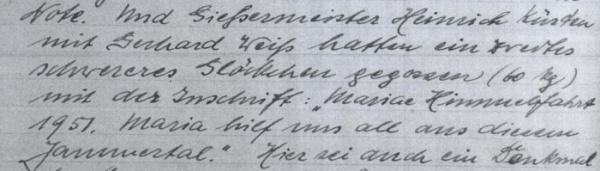 Note." Und Giessermeister Heinrich Kürten
mit Gerhard Weiß hatten ein zweites
schwereres Glöckchen gegossen (60 kg)
mit der Inschrift: „Mariae Himmelfahrt
1951. Maria hilf uns all aus diesem
Jammertal." Hier sei auch ein Denkmal